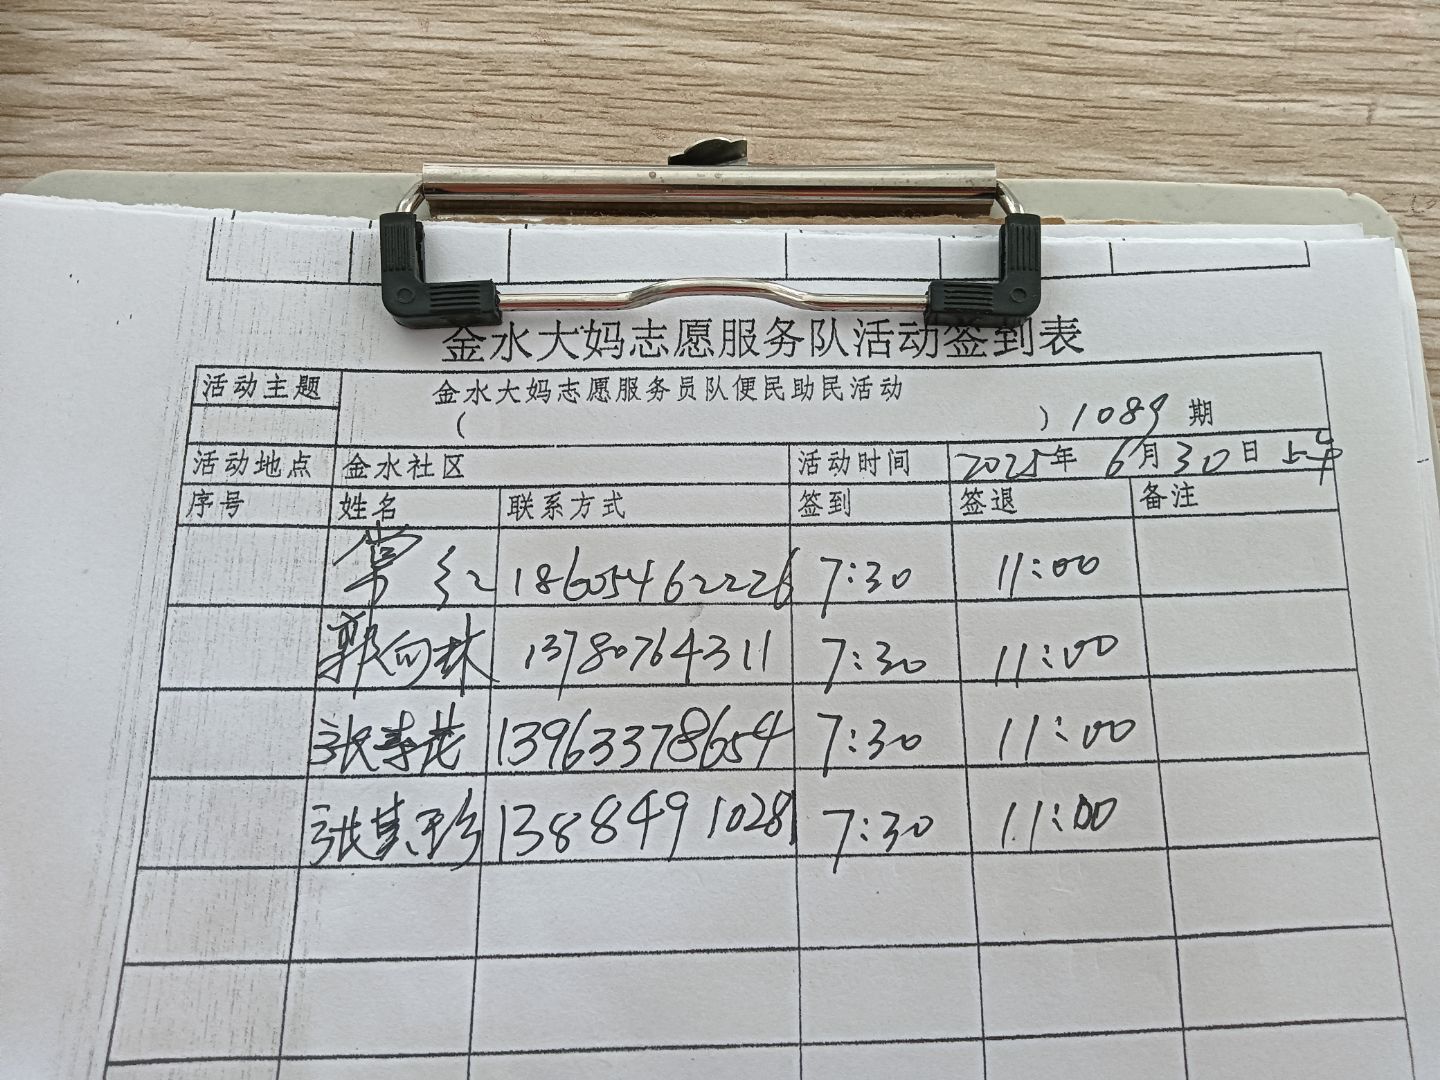 金水大妈志愿服务队活动签到表
活动主题 金水大妈志愿服务员队便民助民活动
( ) 1089 期
活动地点 金水社区 活动时间 2025年 6月30日 上午
序号 姓名 联系方式 签到 签退 备注
常红 18605462226 7:30 11:00
郭向林 13780764311 7:30 11:00
张 花 13963378654 7:30 11:00
张其珍 13884910281 7:30 11:00